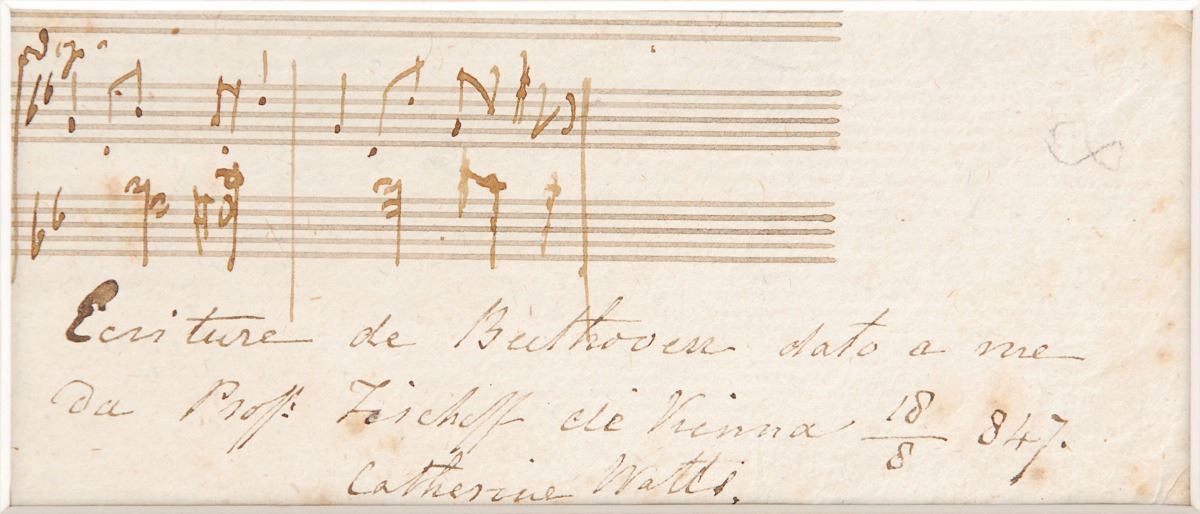 Ecriture de Beethoven dato a me
da Proff: Fischoff di Vienna 18/8 847.
Catherine Watts.